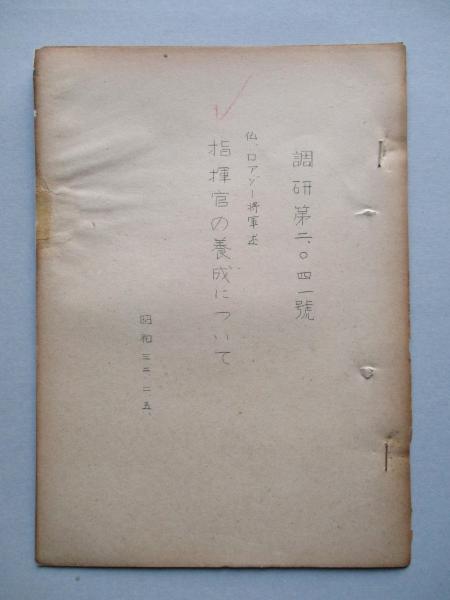 調研第二、〇四一號
仏、ロアゾー将軍述
指揮官の養成について
昭和三二、二五、